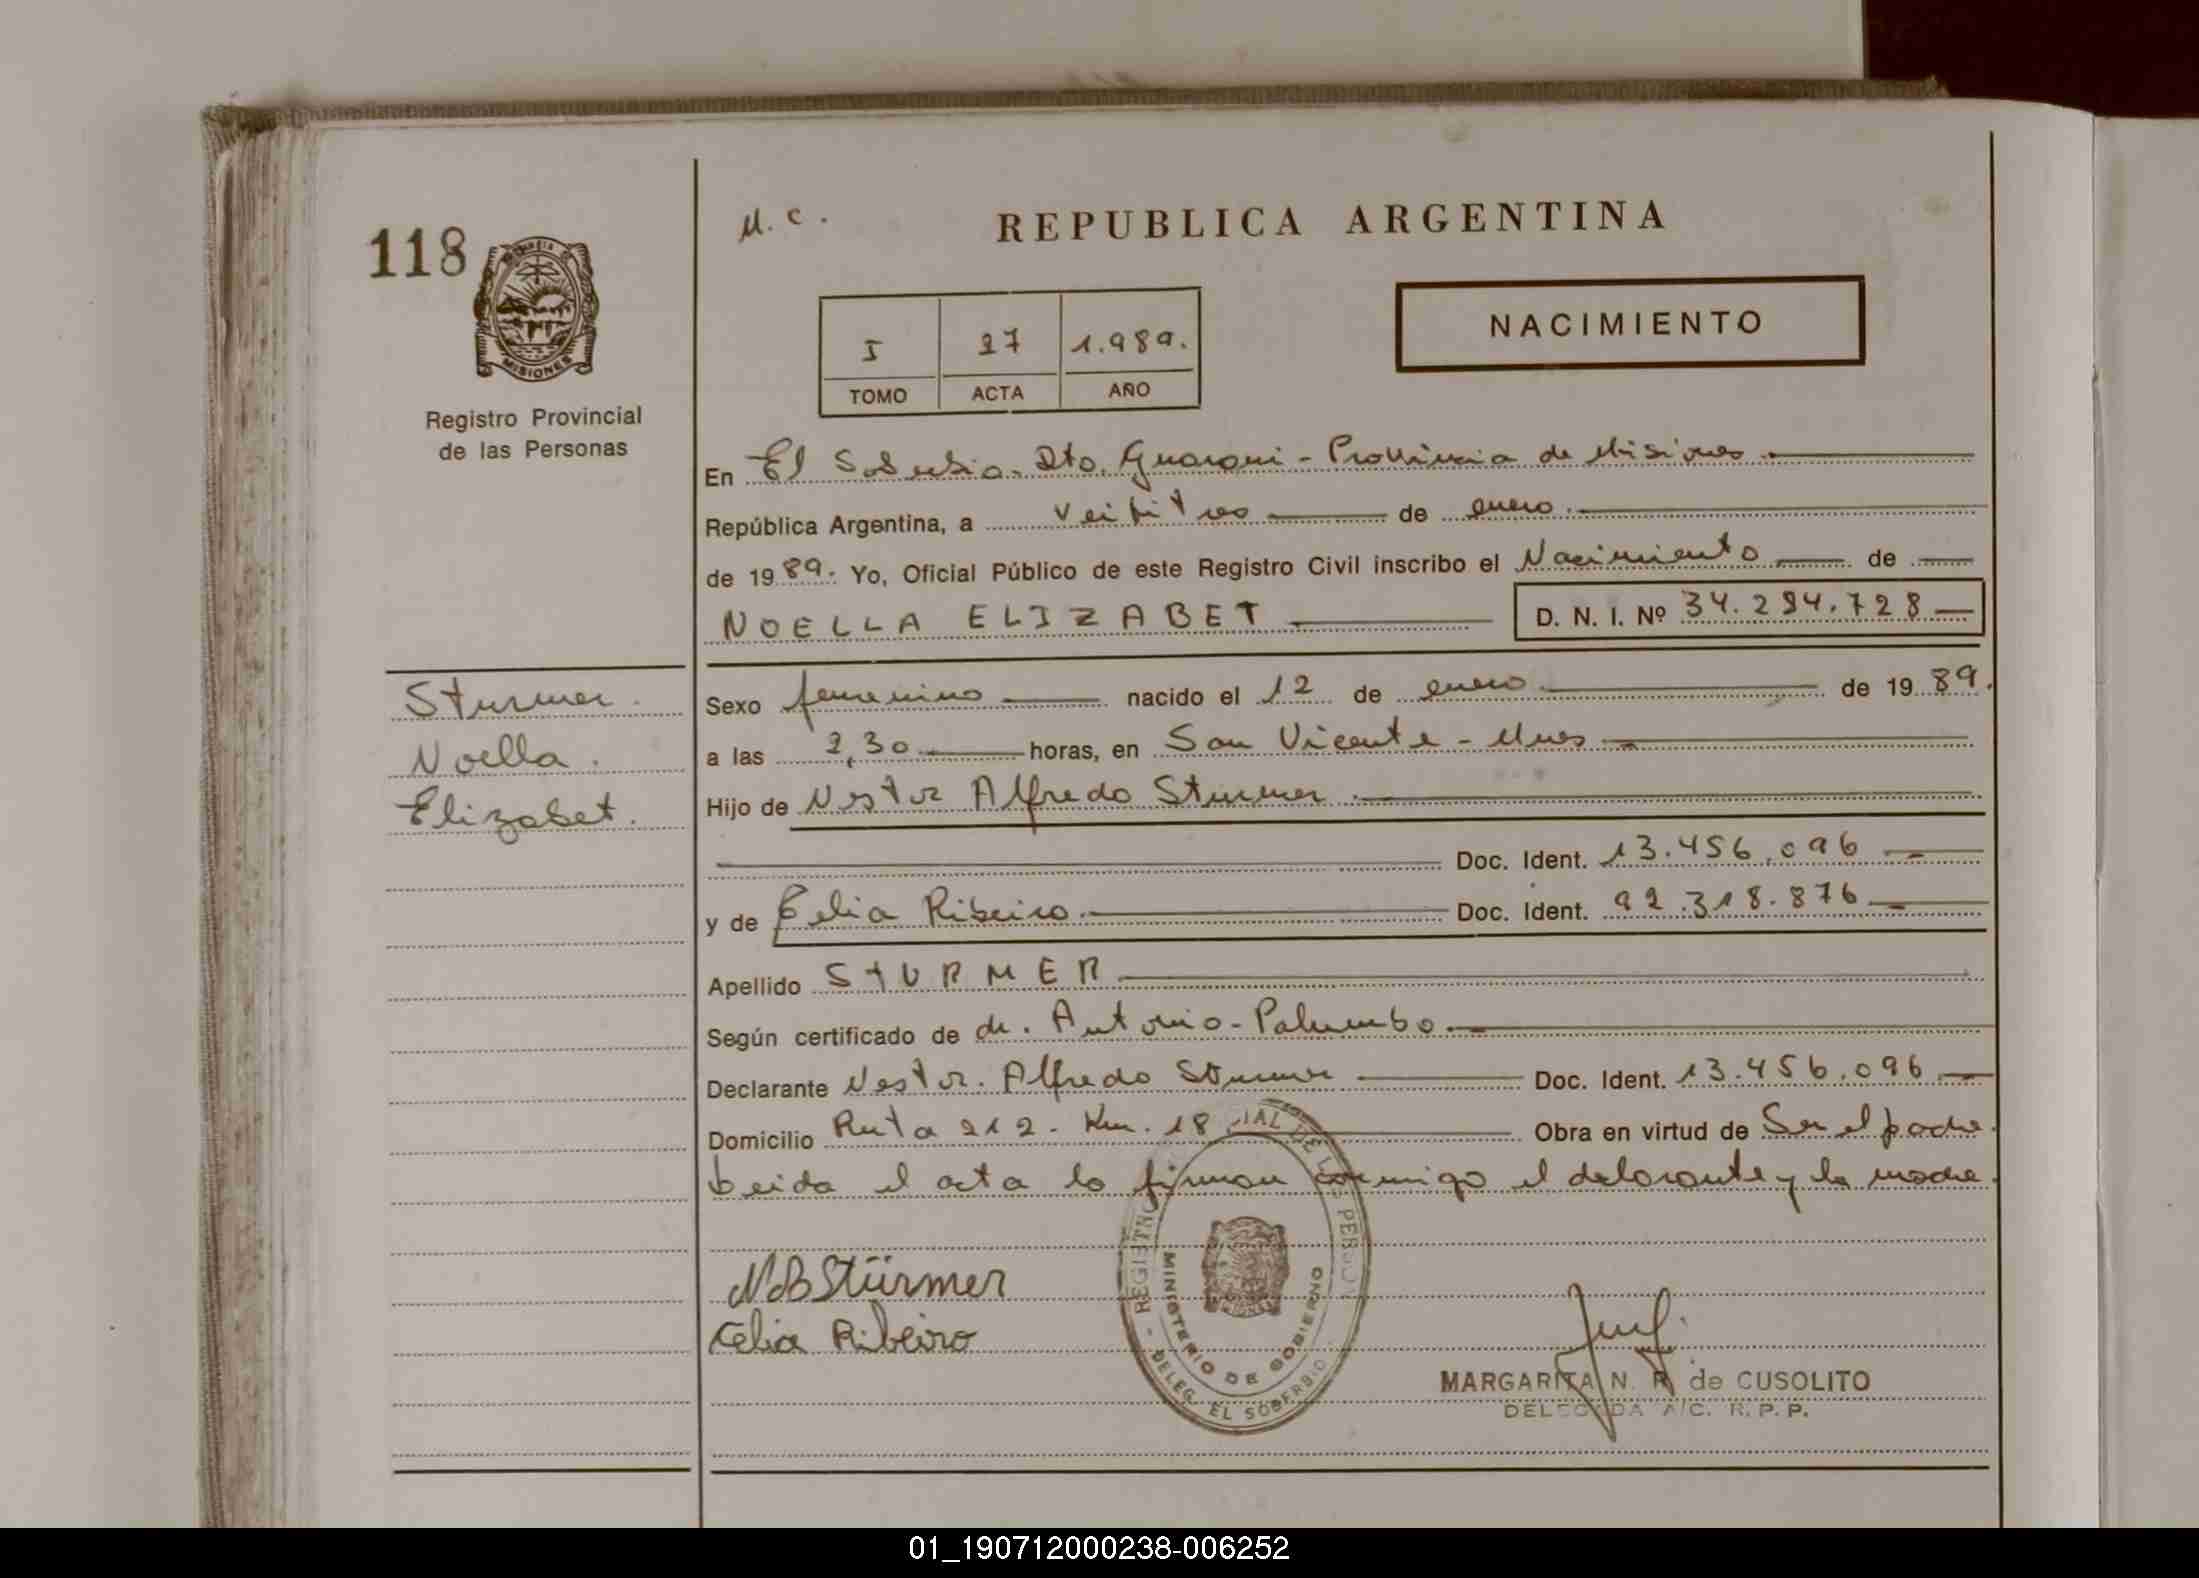 118
M. C.
REPUBLICA ARGENTINA
NACIMIENTO
I 27 1.989.
TOMO ACTA AÑO
MISIONES
Registro Provincial
de las Personas
En El Soberbio. Dto. Guarani - Provincia de Misiones
República Argentina, a veititres de enero.
de 1989. Yo, Oficial Público de este Registro Civil inscribo el Nacimiento de
NOELLA ELIZABET D. N. I. Nº 34.294.728
Sturmer.
Noella.
Elizabet.
Sexo femenino nacido el 12 de enero de 1989.
a las 2,30 horas, en San Vicente - Mnes
Hijo de Nestor Alfredo Sturmer.
Doc. Ident. 13.456.096
y de Celia Ribeiro. Doc. Ident. 92.318.876
Apellido STURMER
Según certificado de dr. Antonio - Palumbo.
Declarante Nestor. Alfredo Sturmer Doc. Ident. 13.456.096
Domicilio Ruta 212 - Km. 18 Obra en virtud de Ser el padre.
Leida el acta la firman conmigo el declarante y la madre.
Stürmer
Celia Ribeiro
MINISTERIO DE GOBIERNO
DELEG. EL SOBERBIO
MARGARITA N. R. de CUSOLITO
DELEGADA A/C. R. P. P.
01_190712000238-006252